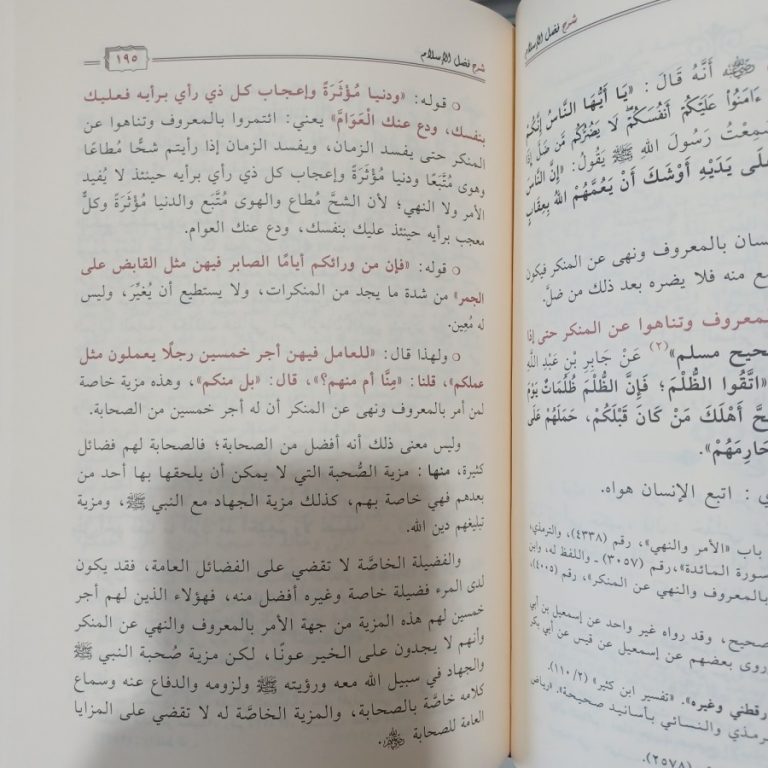 شرح فضل الإسلام
أَنَّهُ قَالَ: «يَا أَيُّهَا النَّاسُ إِنَّكُمْ
ءَامَنُوا۟ عَلَيْكُمْ أَنفُسَكُمْ لَا يَضُرُّكُم مَّن ضَلَّ إِذَا
سَمِعْتُ رَسُولَ اللهِ ﷺ يَقُولُ: «إِنَّ النَّاسَ
عَلَى يَدَيْهِ أَوْشَكَ أَنْ يَعُمَّهُمْ اللهُ بِعِقَابٍ
بالمعروف ونهى عن المنكر فيكون
منه فلا يضره بعد ذلك من ضلَّ.
وتناهوا عن المنكر حتى إذا
مسلم»(٢) عَنْ جَابِرِ بْنِ عَبْدِ اللَّهِ
«اتَّقُوا الظُّلْمَ؛ فَإِنَّ الظُّلْمَ ظُلُمَاتٌ يَوْمَ
أَهْلَكَ مَنْ كَانَ قَبْلَكُمْ، حَمَلَهُمْ عَلَى
: اتبع الإنسان هواه.
باب «الأمر والنهي»، رقم (٤٣٣٨)، والترمذي،
سورة المائدة»، رقم (٣٠٥٧) ـ واللفظ له، وابن
بالمعروف والنهي عن المنكر»، رقم (٤٠٠٥)،
وقد رواه غير واحد عن إسمعيل بن أبي
بعضهم عن إسمعيل عن قيس عن أبي بكر
وغيره». «تفسير ابن كثير» (٢/ ١١٠).
والنسائي بأسانيد صحيحة». «رياض
(٢٥٧٨).
شرح فضل الإسلام
١٩٥
○ قوله: «ودنيا مُؤْثَرَةً وإعجاب كل ذي رأي برأيه فعليك
بنفسك، ودع عنك الْعَوَامَّ» يعني: ائتمروا بالمعروف وتناهوا عن
المنكر حتى يفسد الزمان، ويفسد الزمان إذا رأيتم شحًّا مُطاعًا
وهوى مُتَّبَعًا ودنيا مُؤْثَرَةً وإعجاب كل ذي رأي برأيه حينئذ لا يُفيد
الأمر ولا النهي؛ لأن الشحَّ مُطاع والهوى مُتَّبَع والدنيا مُؤْثَرَةً وكلٌّ
معجب برأيه حينئذ عليك بنفسك، ودع عنك العوام.
○ قوله: «فإن من ورائكم أيامًا الصابر فيهن مثل القابض على
الجمر» من شدة ما يجد من المنكرات، ولا يستطيع أن يُغيِّرَ، وليس
له مُعِين.
○ ولهذا قال: «للعامل فيهن أجر خمسين رجلًا يعملون مثل
عملكم»، قلنا: «مِنَّا أم منهم؟»، قال: «بل منكم»، وهذه مزية خاصة
لمن أمر بالمعروف ونهى عن المنكر أن له أجر خمسين من الصحابة.
وليس معنى ذلك أنه أفضل من الصحابة؛ فالصحابة لهم فضائل
كثيرة، منها: مزية الصُّحبة التي لا يمكن أن يلحقها بها أحد من
بعدهم فهي خاصة بهم، كذلك مزية الجهاد مع النبي ﷺ، ومزية
تبليغهم دين الله.
والفضيلة الخاصَّة لا تقضي على الفضائل العامة، فقد يكون
لدى المرء فضيلة خاصة وغيره أفضل منه، فهؤلاء الذين لهم أجر
خمسين لهم هذه المزية من جهة الأمر بالمعروف والنهي عن المنكر
وأنهم لا يجدون على الخير عونًا، لكن مزية صُحبة النبي ﷺ
والجهاد في سبيل الله معه ورؤيته ﷺ ولزومه والدفاع عنه وسماع
كلامه خاصَّة بالصحابة، والمزية الخاصَّة له لا تقضي على المزايا
العامة للصحابة ﵃.